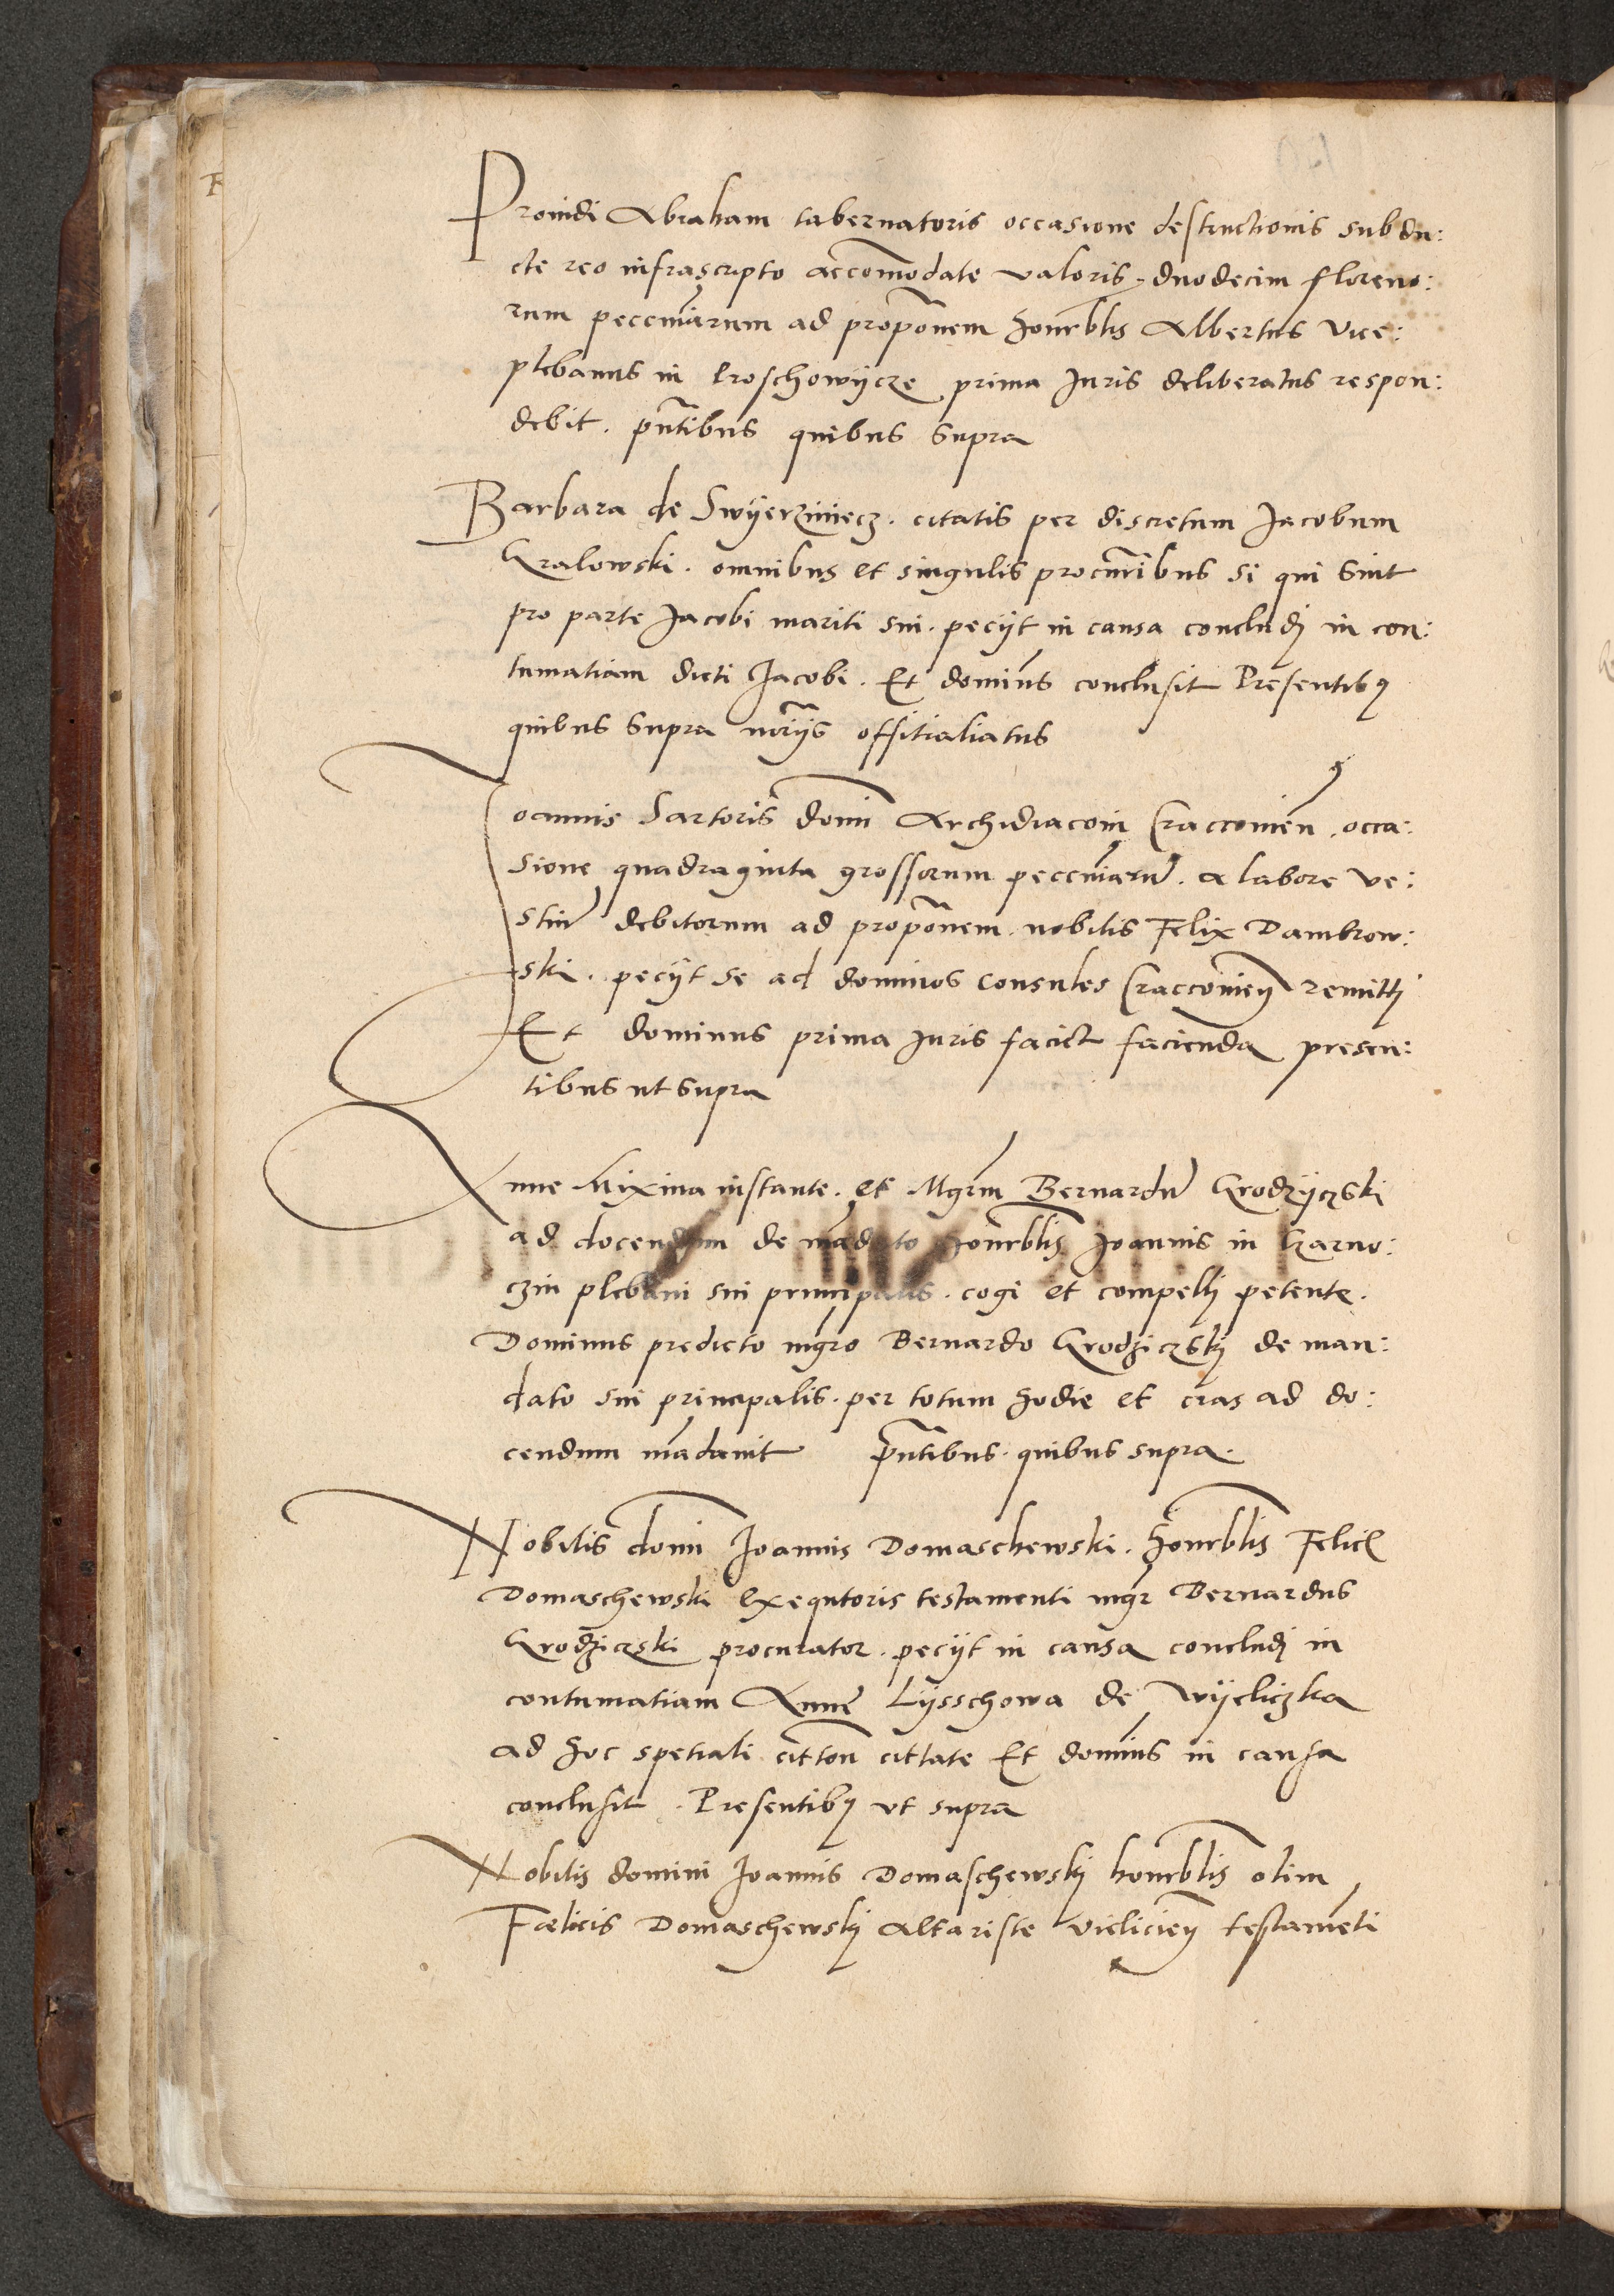 Prouidi Abraham tabernatoris occasione destructionis subdu:
cte reo infrascripto accomodate valoris duodecim floreno:
rum peccuniarum ad proponem honrblis Albertus Vice:
plebanus in Proschowycze prima Juris deliberatus respon:
debit. pntibus quibus supra
Barbara de Swyerziniecz. citatis per discretum Jacobum
Gralowski. omnibus et singulis procuribus si qui sint
pro parte Jacobi mariti sui. pecyt in causa concludj in con:
tumatiam dicti Jacobi. Et dominus conclusit Presentibq
quibus supra notrys offitialiatus
Joannis Sartoris domi Archidiaconi Craccouien. occa:
sione quadraginta grossorum peccuniarum. a labore ve:
stium debitorum ad proponem. nobilis Felix Dambrow:
ski. pecyt se ad dominos Consules Craccouien remittj
Et dominus prima Juris faciet facienda presen:
tibus ut supra
Anne Mixina instante. et Mgrm Bernardum Grodzyczski
ad docendum de mandato honrblis Joannis in Czarno:
czin plebani sui principalis. cogi et compellj petente.
Dominus predicto mgro Bernardo Grodziczskj de man:
dato sui principalis. per totum hodie et cras ad do:
cendum mandauit pntibus. quibus supra.
Nobilis domi Joannis Domaschewski. honrblis Felicis
Domaschewski exequtoris testamenti mgr Bernardus
Grodziczski procurator. pecyt in causa concludj in
contumatiam Anne Lysschowa de Wyeliczka
ad hoc spetiali citton cittate Et dominus in causa
conclusit. Presentibq vt supra
Nobilis domini Joannis Domaschewskj honrblis olim
Fœlicis Domaschewskj altariste Vieliciens testameti